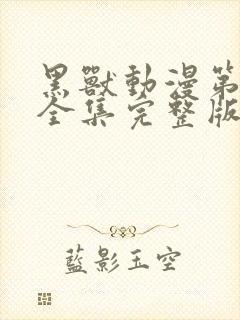 黑獸動漫第
全集完整版
藍影玉空